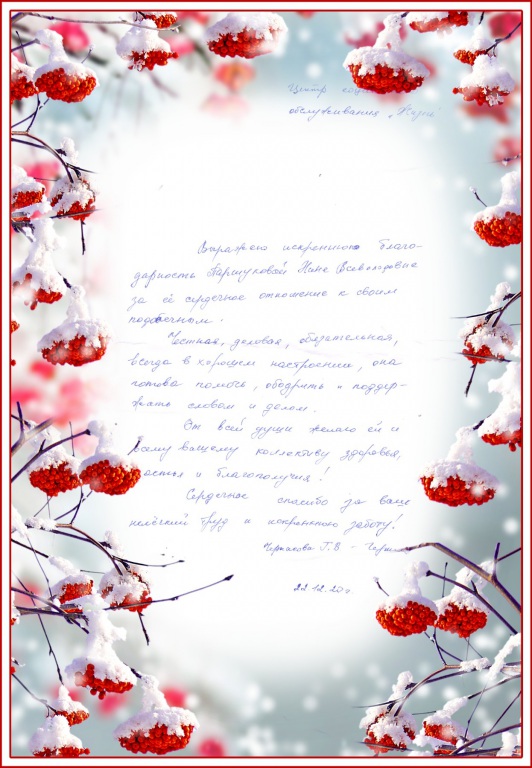 Центр
обслуживания
Выражаю искреннюю благо-
дарность Паршуковой Нине Всеволодовне
за её сердечное отношение к своим
подопечным.
Честная, деловая, обязательная,
всегда в хорошем настроении, она
готова помочь, ободрить и поддер-
жать словом и делом.
От всей души желаю ей и
всему вашему коллективу здоровья,
счастья и благополучия!
Сердечное спасибо за ваш
нелёгкий труд и искреннюю заботу!
Г.В. -
22.12.20г.